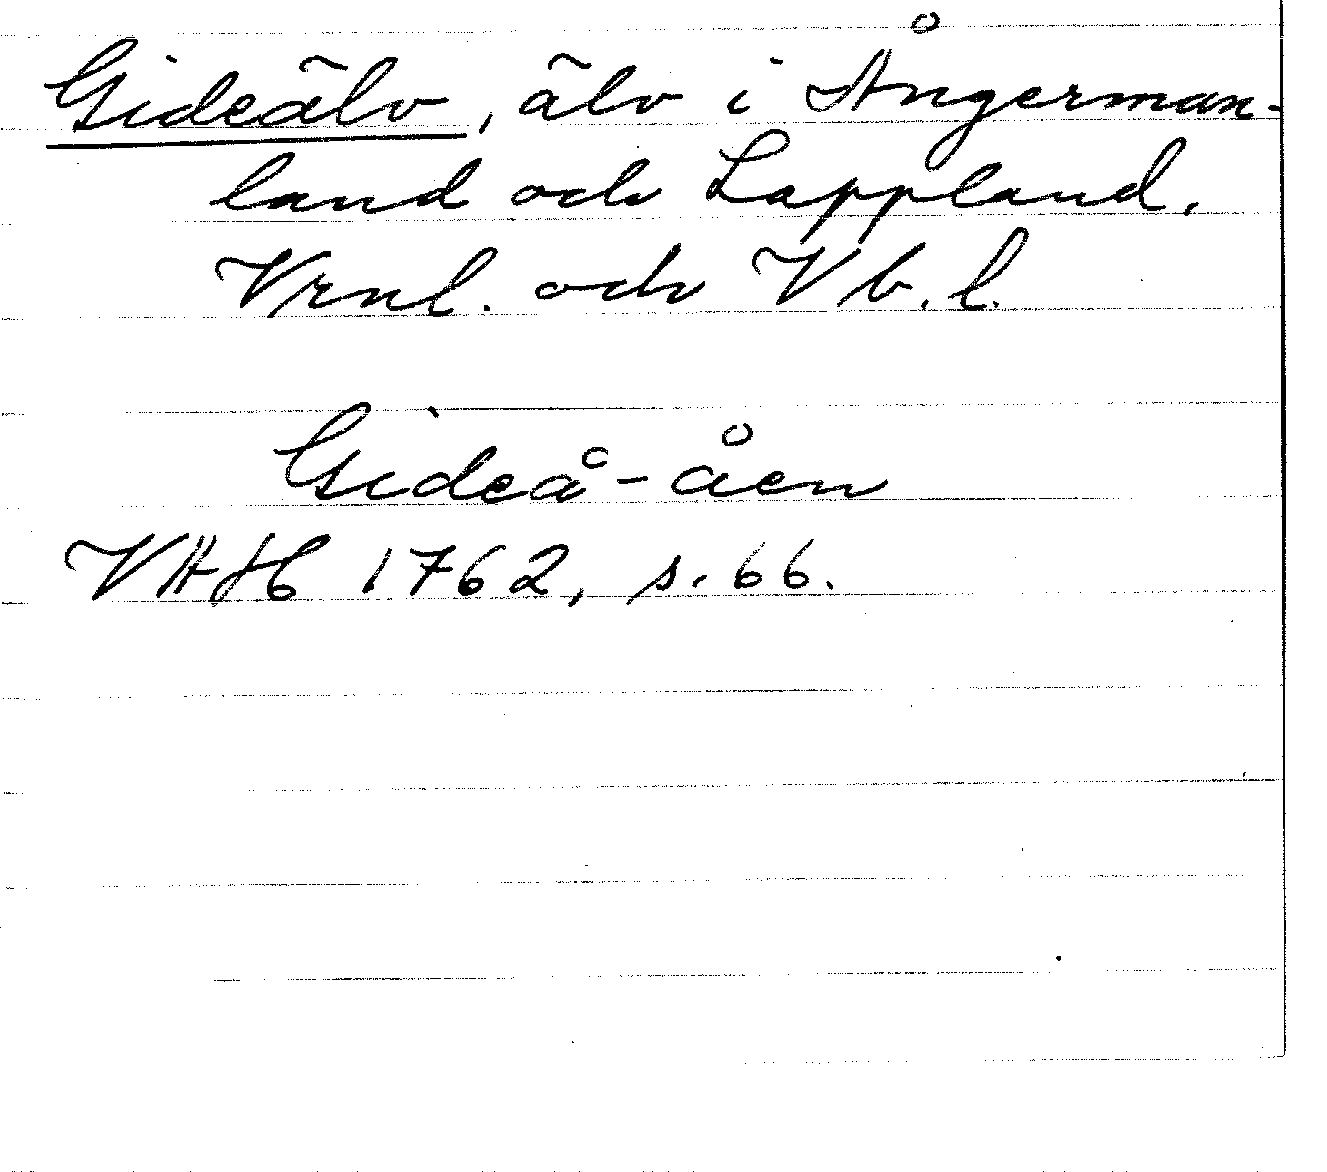 Gideälv, älv i Ångerman-
land och Lappland.
Vrnl. och Vb. l.
Gideå-åen
VAH 1762, s. 66.